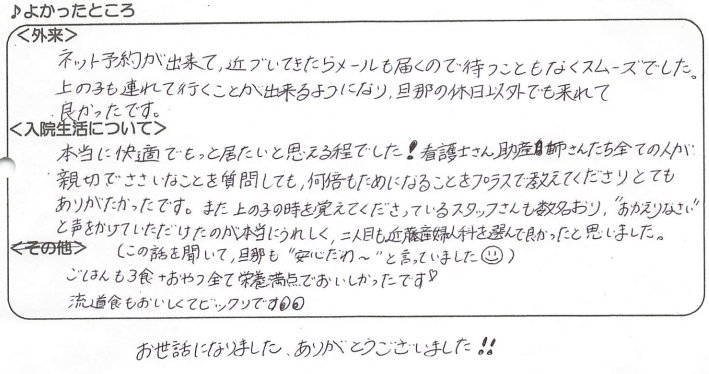 ♪よかったところ
<外来>
ネット予約が出来て,近づいてきたらメールも届くので待つこともなくスムーズでした。
上の子も連れて行くことが出来るようになり,旦那の休日以外でも来れて
良かったです。
<入院生活について>
本当に快適でもっと居たいと思える程でした!看護士さん,助産師さんたち全ての人が
親切でささいなことを質問しても,何倍もためになることをプラスで教えてくださりとても
ありがたかったです。また上の子の時を覚えてくださっているスタッフさんも数名おり,"おかえりなさい"
と声をかけていただけたのが本当にうれしく,二人目も近藤産婦人科を選んで良かったと思いました。
<その他> (この話を聞いて,旦那も"安心だわ~"と言っていました☺)
ごはんも3食+おやつ全て栄養満点でおいしかったです♡
流道食もおいしくてビックリです
お世話になりました、ありがとうございました!!